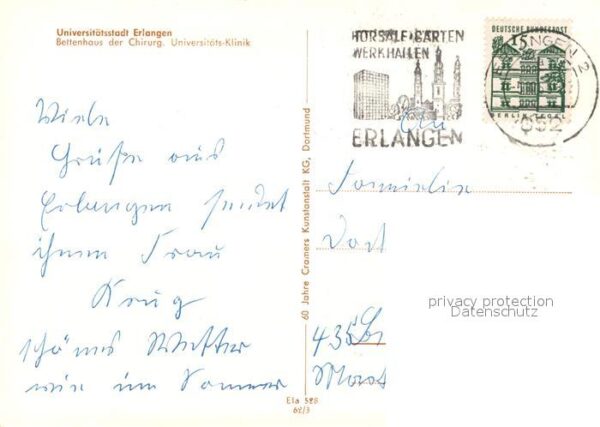 Universitätsstadt Erlangen
Bettenhaus der Chirurg. Universitäts-Klinik
HÖRSÄLE·GÄRTEN
WERKHALLEN
ERLANGEN
DEUTSCHE BUNDESPOST
15
BERLIN-TEGEL
ERLANGEN 2
852
Viele
Grüße aus
Erlangen sendet
ihnen Frau
Krug
schönes Wetter
wie im Sommer
60 Jahre Cramers Kunstanstalt KG, Dortmund
Familie
435
privacy protection
Datenschutz
Ela 528
62/3